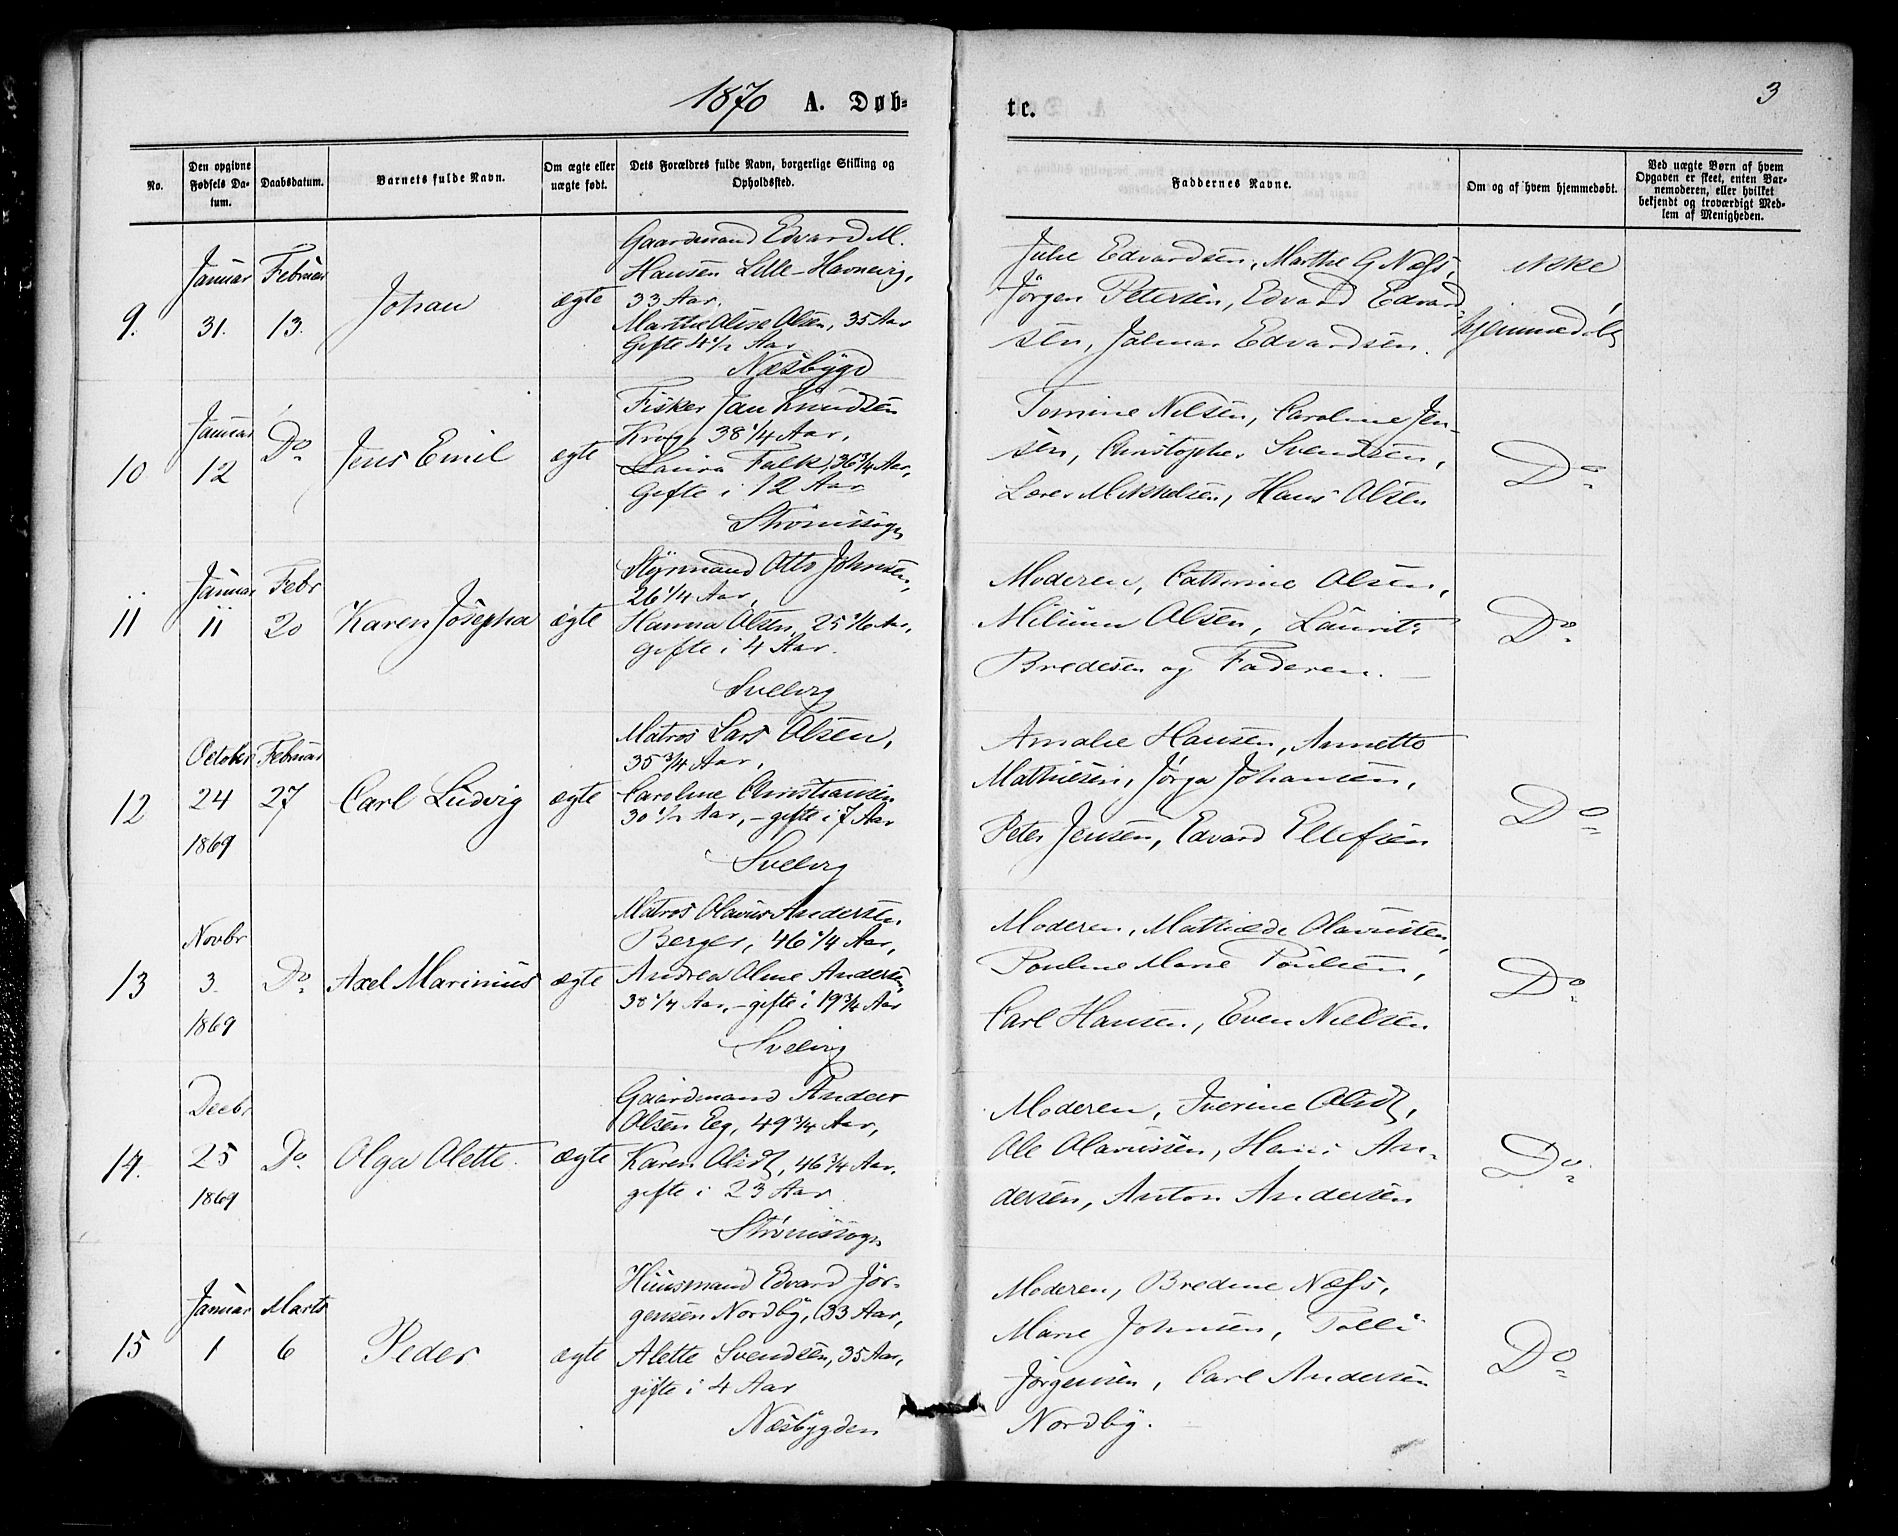 1870 A. Døb=
te.
3
No.
Den opgivne Fødsels Da-
tum.
Daabsdatum.
Barnets fulde Navn.
Om ægte eller
uægte født.
Dets Forældres fulde Navn, borgerlige Stilling og
Opholdssted.
Faddernes Navne.
Om og af hvem hjemmedøbt.
Ved uægte Børn af hvem
Opgaven er skeet, enten Bar-
nemoderen, eller hvilket
bekjendt og troværdigt Med-
lem af Menigheden.
9.
Januar
31.
Februar
13.
Johan
ægte
Gaardmand Edvard M.
Hansen Lille-Havnevig,
33 Aar.
Marthe Olise Olsen, 35 Aar
Gifte 4 1/2 Aar
Næsbygd
Julie Edvardsen, Marthe G Næss,
Jörgen Petersen, Edvard Edvard
sen, Jalmar Edvardsen.
ikke
hjemmedöbt
10
Januar
12
Do
Jens Emil
ægte
Fisker Jan Knudsen
Krog, 38 1/4 Aar,
Laura Falk, 36 3/4 Aar,
Gifte i 12 Aar
Strömssogn
Tomine Nilsen, Caroline Jen-
sen, Christopher Svendsen,
Lærer Mikkelsen, Hans Olsen
Do
11
Januar
11
Febr
20
Karen Josepha
ægte
Styrmand Otto Johnsen,
26 1/4 Aar,
Hanna Olsen, 25 1/6 Aar,
gifte i 4 Aar.
Svelvig
Moderen, Cathrine Olsen,
Olsen, Laurits
Bredesen og Faderen.
Do
12
October
24
1869
Februar
27
Carl Ludvig
ægte
Matros Lars Olsen,
35 3/4 Aar,
Caroline Christiansen
30 1/2 Aar, - gifte i 7 Aar
Svelvig
Amalie Hansen, Annette
Mathiesen, Johansen,
Peter Jensen, Edvard Ellefsen
Do
13
Novbr
3.
1869
Do
Axel Marinius
ægte
Matros Olavus Andersen
Berger, 46 1/4 Aar,
Andrea Oline Andersen,
38 1/4 Aar, - gifte i 19 3/4 Aar
Svelvig
Moderen, Mathilde Olavussen,
Pauline Marie Poulsen,
Carl Hansen, Even Nielsen
Do
14.
Decbr
25
1869
Do
Olga Olette.
ægte
Gaardmand Anders
Olsen Eeg, 49 3/4 Aar,
Karen Olsdt, 46 3/4 Aar,
gifte i 23 Aar.
Strömssogn
Moderen, Iverine Olsdt,
Ole Olavussen, Hans An-
dersen, Anton Andersen
Do
15
Januar
1
Marts
6
Peder
ægte
Huusmand Edvard Jör-
gensen Nordby, 33 Aar,
Alette Svendsen, 35 Aar,
gifte i 4 Aar
Næsbygden
Moderen, Bredine Næss,
Marie Johnsen,
Jørgensen, Carl Andersen
Nordby.
Do